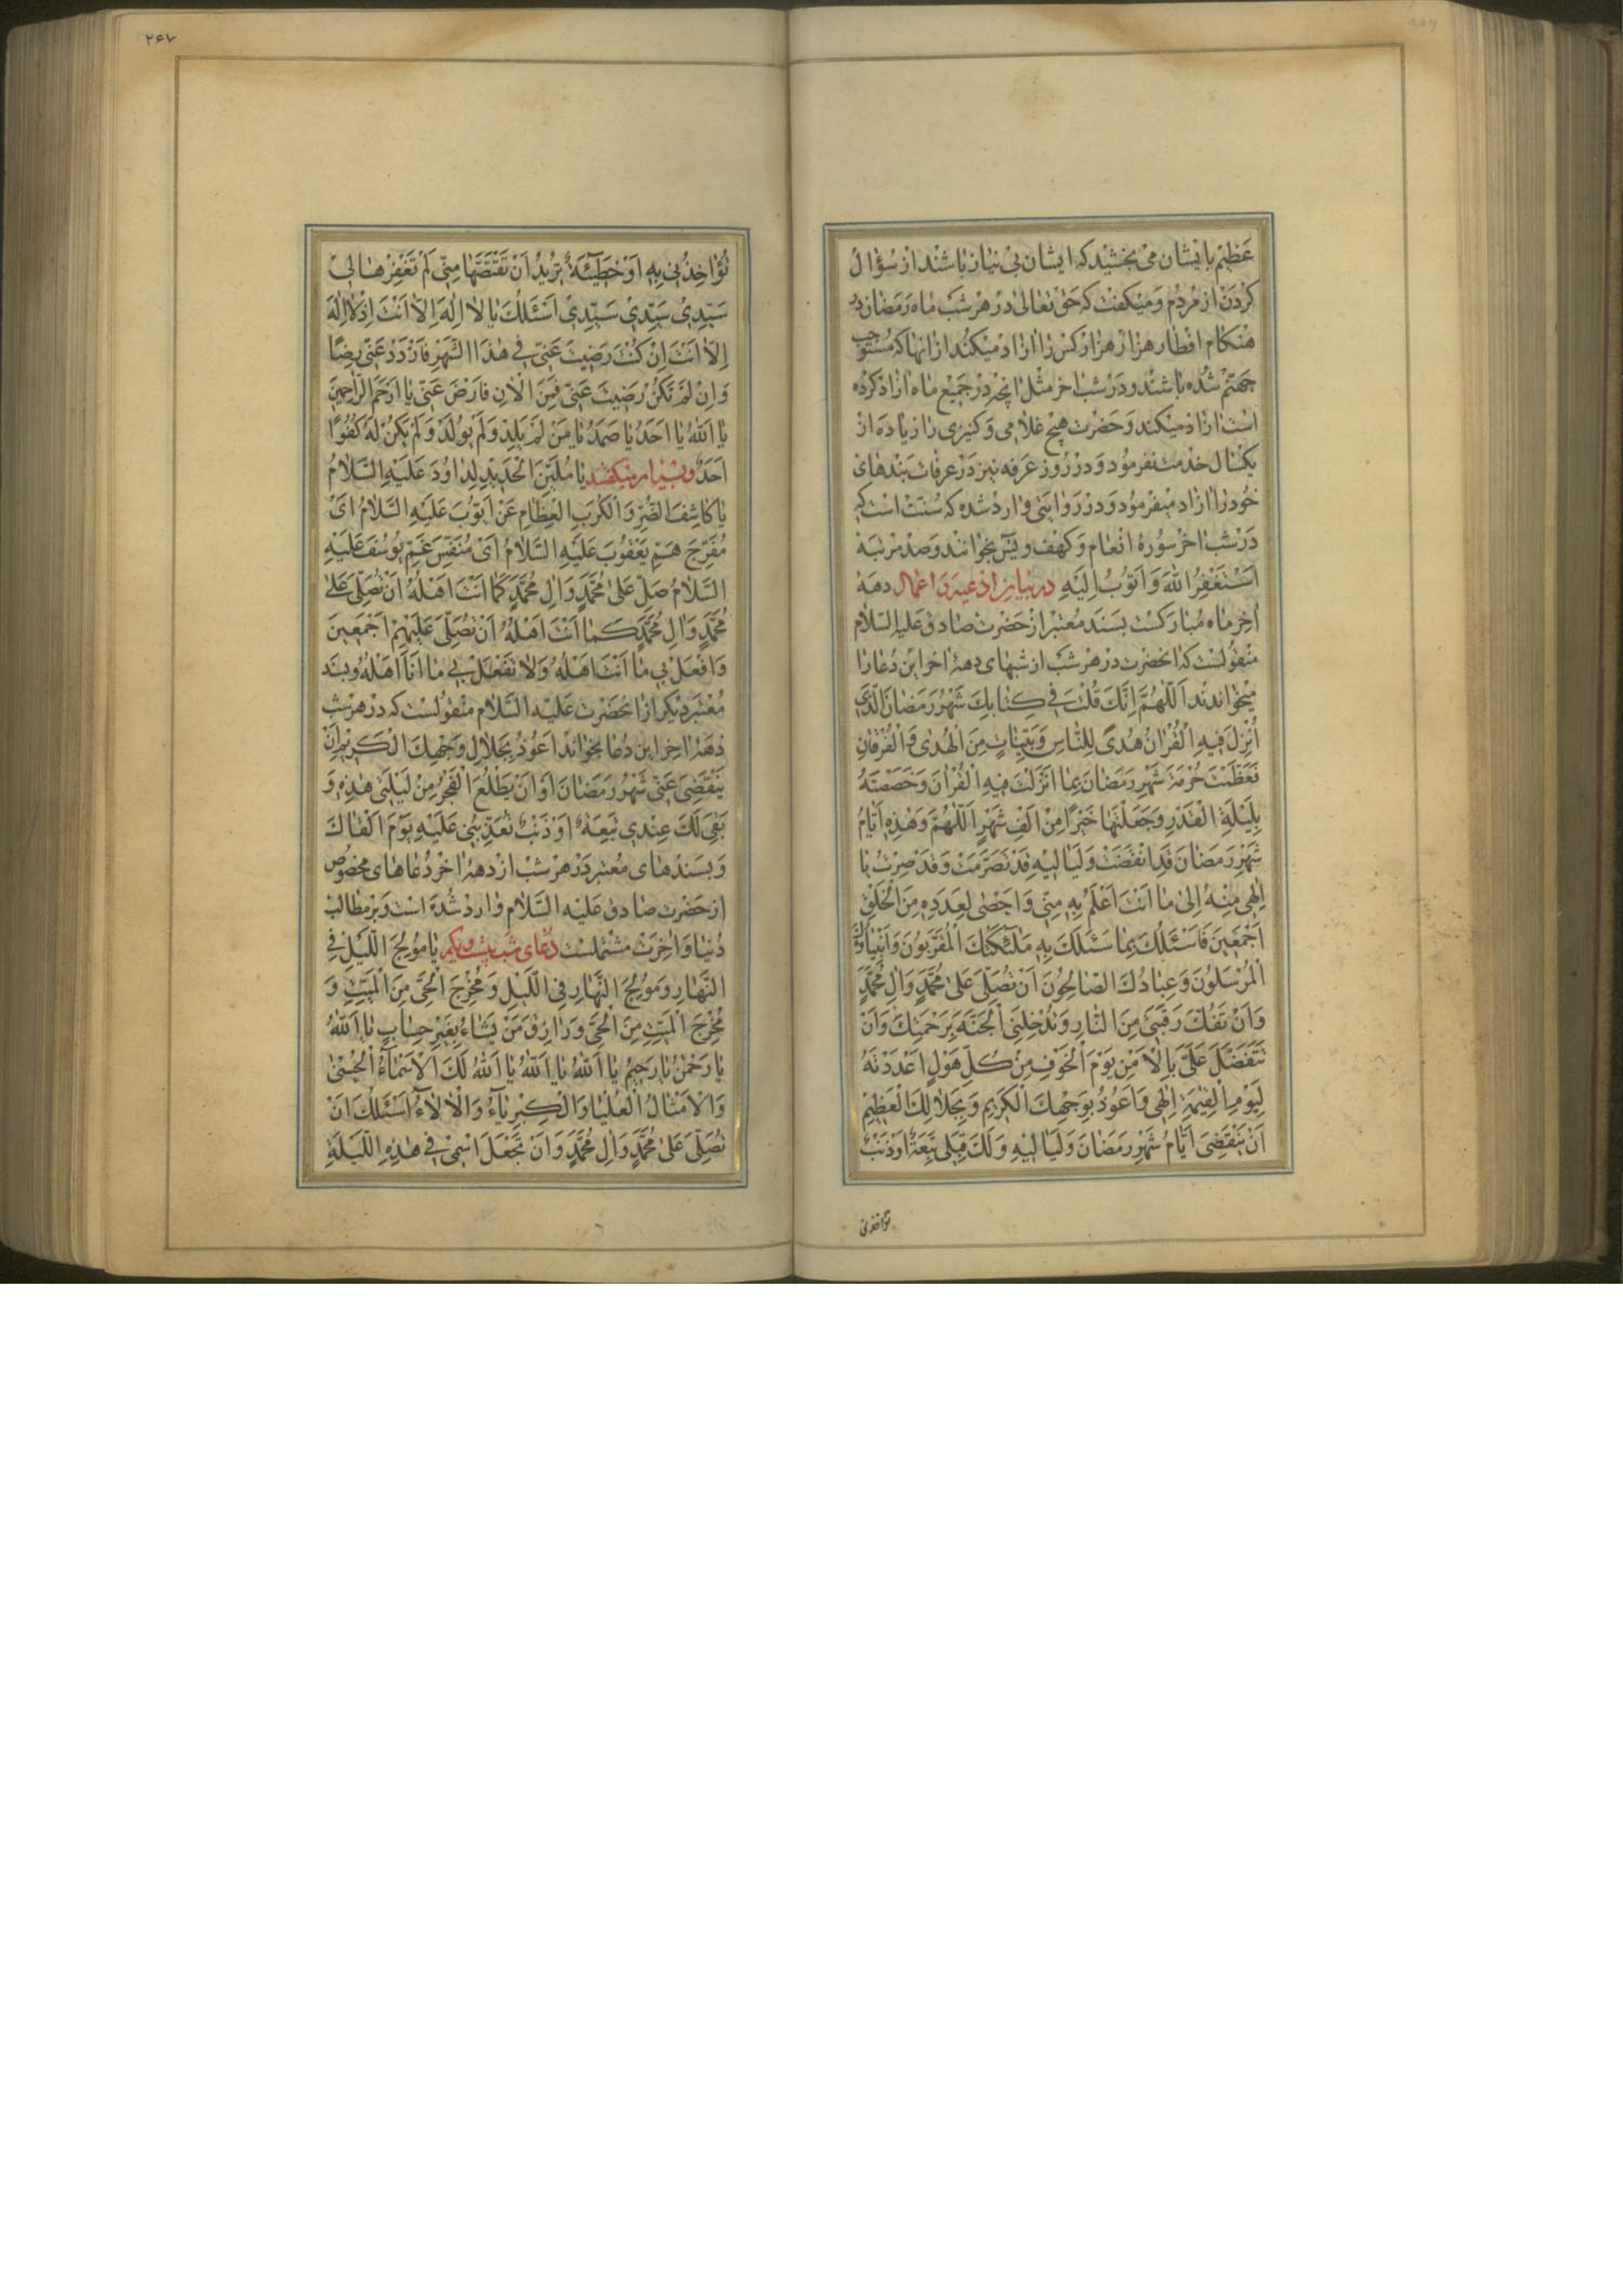 عَظِيْم بايشان مى بخشيد كه ايشان بى نياز باشند از سؤال
كردن از مردم و ميكفت كه حق تعالى در هر شب ماه رمضان در
هنكام افطار هزار هزار كس را ازاد ميكند از انها كه مستوجب
جهنّم شده باشند و در شب اخر مثل انچه در جميع ماه ازاد كرده
است ازاد ميكند و حضرت هيچ غلامى و كنيزى را زياده از
يكسال خدمت نفرمود و در روز عرفه نيز در عرفات بندهاى
خود را ازاد ميفرمود و در روايتى وارد شده كه سنّت است كه
در شب اخر سورهٔ انعام و كهف و يس بخوانند و صد مرتبه
اَسْتَغْفِرُ اللّهَ وَ اَتُوبُ اِلَيْهِ در بيان ادعيه و اعمال دههٔ
اخر ماه مباركست بسند معتبر از حضرت صادق عليه السّلام
منقولست كه انحضرت در هر شب از شبهاى دههٔ اخر اين دعا را
ميخواندند اَللّهُمَّ اِنَّكَ قُلْتَ فى كِتابِكَ شَهْرُ رَمَضانَ الَّذى
اُنْزِلَ فيهِ الْقُرْانُ هُدىً لِلنّاسِ وَ بَيِّناتٍ مِنَ الْهُدى وَ الْفُرْقانِ
فَعَظَّمْتَ حُرْمَةَ شَهْرِ رَمَضانَ بِما اَنْزَلْتَ فيهِ الْقُرْانَ وَ خَصَصْتَهُ
بِلَيْلَةِ الْقَدْرِ وَ جَعَلْتَها خَيْرًا مِنْ اَلْفِ شَهْرٍ اَللّهُمَّ وَ هٰذِهِ اَيّامُ
شَهْرِ رَمَضانَ قَدِ انْقَضَتْ وَ لَياليهِ قَدْ تَصَرَّمَتْ وَ قَدْ صِرْتُ يا
اِلهى مِنْهُ اِلى ما اَنْتَ اَعْلَمُ بِهِ مِنّى وَ اَحْصى لِعَدَدِهِ مِنَ الْخَلْقِ
اَجْمَعينَ فَاَسْئَلُكَ بِما سَئَلَكَ بِهِ مَلٰٓئِكَتُكَ الْمُقَرَّبُونَ وَ اَنْبِياؤُكَ
الْمُرْسَلُونَ وَ عِبادُكَ الصّالِحُونَ اَنْ تُصَلِّىَ عَلى مُحَمَّدٍ وَ الِ مُحَمَّدٍ
وَ اَنْ تَفُكَّ رَقَبَتى مِنَ النّارِ وَ تُدْخِلَنِى الْجَنَّةَ بِرَحْمَتِكَ وَ اَنْ
تَتَفَضَّلَ عَلَىَّ بِالْاَمْنِ يَوْمَ الْخَوْفِ مِنْ كُلِّ هَوْلٍ اَعْدَدْتَهُ
لِيَوْمِ الْقِيٰمَةِ اِلٰهى وَ اَعُوذُ بِوَجْهِكَ الْكَريمِ وَ بِجَلالِكَ الْعَظيمِ
اَنْ يَنْقَضِىَ اَيّامُ شَهْرِ رَمَضانَ وَ لَياليهِ وَ لَكَ قِبَلى تَبِعَةٌ اَوْ ذَنْبٌ
تؤاخذنى
٢۶٧
تُؤاخِذُنى بِهِ اَوْ خَطيٓئَةٌ تُريدُ اَنْ تَقْتَصَّها مِنّى لَمْ تَغْفِرْها لى
سَيِّدى سَيِّدى سَيِّدى اَسْئَلُكَ يا لا اِلٰهَ اِلاّ اَنْتَ اِذْ لا اِلٰهَ
اِلاّ اَنْتَ اِنْ كُنْتَ رَضيتَ عَنّى فى هٰذَا الشَّهْرِ فَازْدَدْ عَنّى رِضًا
وَ اِنْ لَمْ تَكُنْ رَضيتَ عَنّى فَمِنَ الْانِ فَارْضَ عَنّى يا اَرْحَمَ الرّاحِمينَ
يا اَللّهُ يا اَحَدُ يا صَمَدُ يا مَنْ لَمْ يَلِدْ وَ لَمْ يُولَدْ وَ لَمْ يَكُنْ لَهُ كُفُوًا
اَحَدٌ و بسيار ميكفتند يا مُلَيِّنَ الْحَديدِ لِداوُدَ عَلَيْهِ السَّلامُ
يا كاشِفَ الضُّرِّ وَ الْكُرَبِ الْعِظامِ عَنْ اَيُّوبَ عَلَيْهِ السَّلامُ اَىْ
مُفَرِّجَ هَمِّ يَعْقُوبَ عَلَيْهِ السَّلامُ اَىْ مُنَفِّسَ غَمِّ يُوسُفَ عَلَيْهِ
السَّلامُ صَلِّ عَلى مُحَمَّدٍ وَ الِ مُحَمَّدٍ كَما اَنْتَ اَهْلُهُ اَنْ تُصَلِّىَ عَلى
مُحَمَّدٍ وَ الِ مُحَمَّدٍ كَما اَنْتَ اَهْلُهُ اَنْ تُصَلِّىَ عَلَيْهِمْ اَجْمَعينَ
وَ افْعَلْ بى ما اَنْتَ اَهْلُهُ وَ لا تَفْعَلْ بى ما اَنَا اَهْلُهُ و بسند
معتبر ديكر از انحضرت عليه السّلام منقولست كه در هر شب
دههٔ اخر اين دعا بخواند اَعُوذُ بِجَلالِ وَجْهِكَ الْكَريمِ اَنْ
يَنْقَضِىَ عَنّى شَهْرُ رَمَضانَ اَوْ اَنْ يَطْلُعَ الْفَجْرُ مِنْ لَيْلَتى هٰذِهِ وَ
بَقِىَ لَكَ عِنْدى تَبِعَةٌ اَوْ ذَنْبٌ تُعَذِّبُنى عَلَيْهِ يَوْمَ اَلْقاكَ
و بسندهاى معتبر در هر شب از دههٔ اخر دعاهاى مخصوص
از حضرت صادق عليه السّلام وارد شده است و بر مطالب
دنيا و اخرت مشتملست دعاى شب بيست و يكم يا مُولِجَ اللَّيْلِ فِى
النَّهارِ وَ مُولِجَ النَّهارِ فِى اللَّيْلِ وَ مُخْرِجَ الْحَىِّ مِنَ الْمَيِّتِ وَ
مُخْرِجَ الْمَيِّتِ مِنَ الْحَىِّ وَ رازِقَ مَنْ يَشاءُ بِغَيْرِ حِسابٍ يا اَللّهُ
يا رَحْمٰنُ يا رَحيمُ يا اَللّهُ يا اَللّهُ يا اَللّهُ لَكَ الْاَسْمآءُ الْحُسْنى
وَ الْاَمْثالُ الْعُلْيا وَ الْكِبْرِيآءُ وَ الْالآءُ اَسْئَلُكَ اَنْ
تُصَلِّىَ عَلى مُحَمَّدٍ وَ الِ مُحَمَّدٍ وَ اَنْ تَجْعَلَ اسْمى فى هٰذِهِ اللَّيْلَةِ